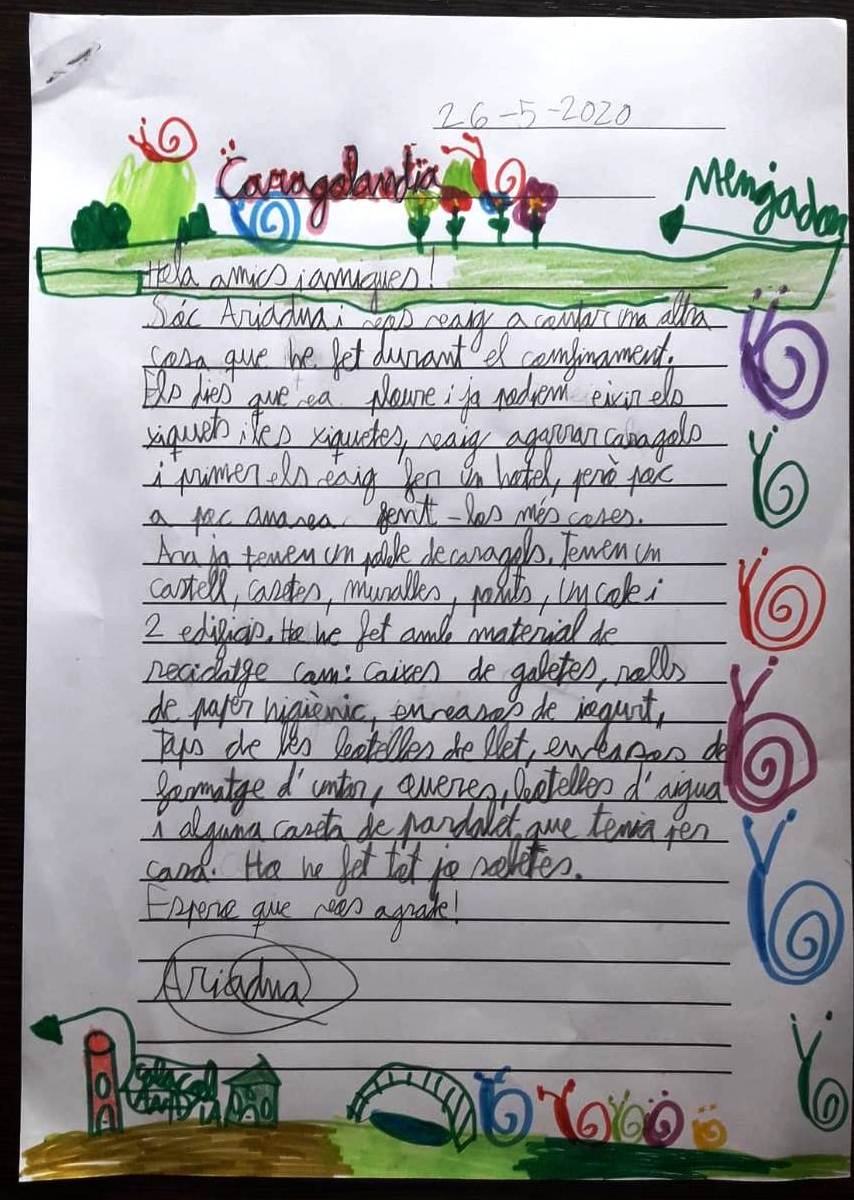 26-5-2020
Caragolandia
Menjador
Hola amics i amigues!
Sóc Ariadna i vos vaig a contar una altra
cosa que he fet durant el confinament.
Els dies que va ploure i ja podiem eixir els
xiquets i les xiquetes, vaig agarrar caragols
i primer els vaig fer un hotel, però poc
a poc anava fent-los més coses.
Ara ja tenen un poble de caragols. Tenen un
castell, casetes, muralles, ponts, un cole i
2 edificis. Ho he fet amb material de
reciclatge com: caixes de galetes, rolls
de paper higiènic, envasos de iogurt,
Taps de les botelles de llet, envasos de
formatge d'untar, oueres, botelles d'aigua
i alguna caseta de pardalet que tenia per
casa. Ho he fet tot jo soletes.
Espero que vos agrade!
Ariadna